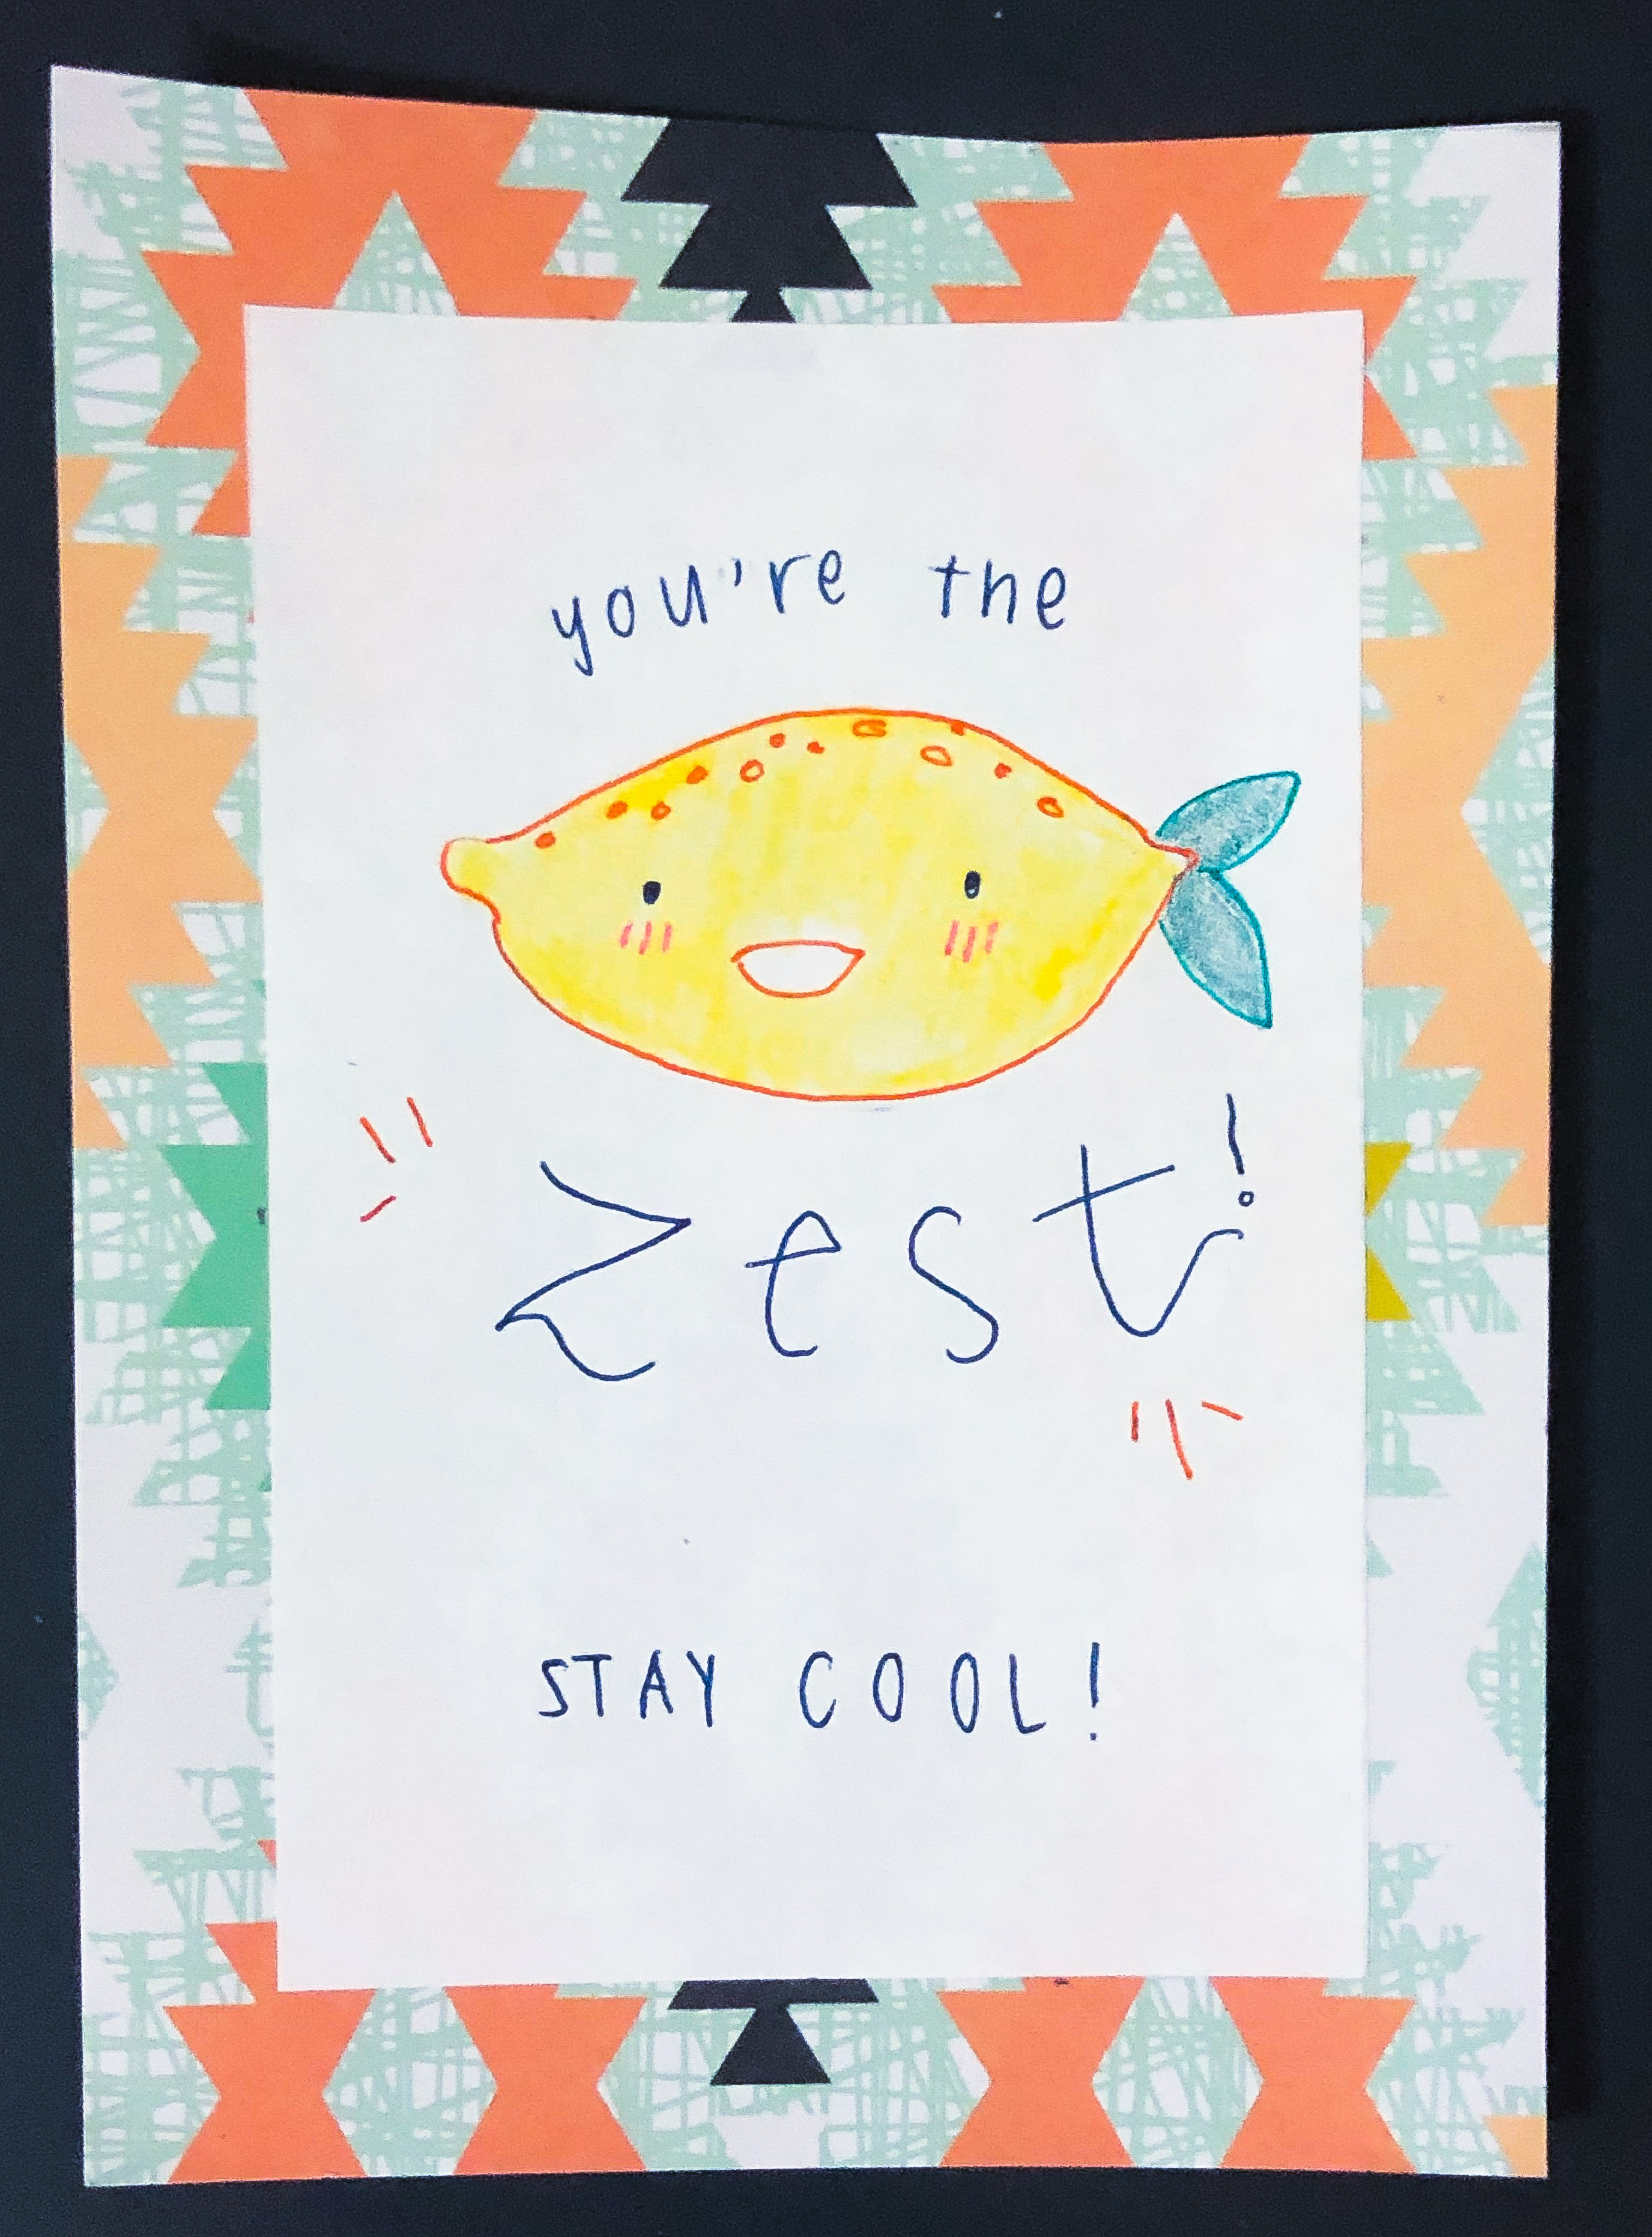 you're the
zest!
STAY COOL!